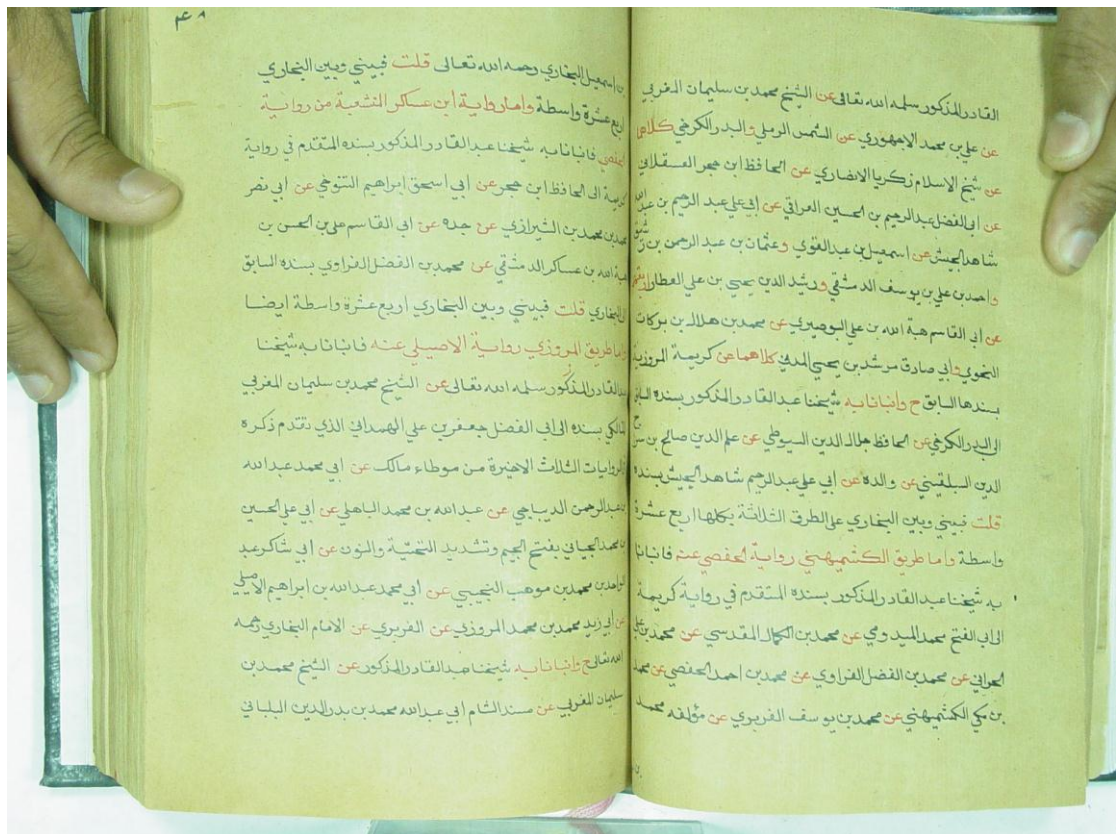 القادر المذكور سلمه الله تعالى عن الشيخ محمد بن سليمان المغربي
عن علي بن محمد الاجهوري عن الشمس الرملي والبدر الكرخي كلاهما
عن شيخ الاسلام زكريا الانصاري عن الحافظ ابن حجر العسقلاني
عن ابي الفضل عبد الرحيم بن الحسين العراقي عن ابي علي عبد الرحيم بن عبد الله
شاهد الجيش عن اسمعيل بن عبد القوي وعثمان بن عبد الرحمن بن رشيق
واحمد بن علي بن يوسف الدمشقي ورشيد الدين يحيى بن علي العطار اربعتهم
عن ابي القاسم هبة الله بن علي البوصيري عن محمد بن هلال بن بركات
النحوي وابي صادق مرشد بن يحيى المدني كلاهما عن كريمة المروزية
بسندها السابق ح وانبانا به شيخنا عبد القادر المذكور بسنده السابق
الى البدر الكرخي عن الحافظ جلال الدين السيوطي عن علم الدين صالح بن سراج
الدين البلقيني عن والده عن ابي علي عبد الرحيم شاهد الجيش بسنده
قلت فبيني وبين البخاري على الطرق الثلاثة بكلها اربع عشرة
واسطة واما طريق الكشميهني رواية الحفصي عنه فانبانا
به شيخنا عبد القادر المذكور بسنده المتقدم في رواية كريمة
الى ابي الفتح محمد الميدومي عن محمد بن الكمال المقدسي عن محمد بن علي
الحراني عن محمد بن الفضل الفراوي عن محمد بن احمد الحفصي عن محمد
بن مكي الكشميهني عن محمد بن يوسف الفربري عن مؤلفه محمد
بن اسمعيل البخاري رحمه الله تعالى قلت فبيني وبين البخاري
اربع عشرة واسطة واما رواية ابن عساكر المتشعبة من رواية
الحفصي فانبانا به شيخنا عبد القادر المذكور بسنده المتقدم في رواية
كريمة الى الحافظ ابن حجر عن ابي اسحق ابراهيم التنوخي عن ابي نصر
محمد بن محمد بن الشيرازي عن جده عن ابي القاسم علي بن الحسن بن
هبة الله بن عساكر الدمشقي عن محمد بن الفضل الفراوي بسنده السابق
الى البخاري قلت فبيني وبين البخاري اربع عشرة واسطة ايضا
واما طريق المروزي رواية الاصيلي عنه فانبانا به شيخنا
عبد القادر المذكور سلمه الله تعالى عن الشيخ محمد بن سليمان المغربي
المالكي بسنده الى ابي الفضل جعفر بن علي الهمداني الذي تقدم ذكره
في الروايات الثلاث الاخيرة من موطاء مالك عن ابي محمد عبد الله
بن عبد الرحمن الديباجي عن عبد الله بن محمد الباهلي عن ابي علي الحسين
بن محمد الجياني بفتح الجيم وتشديد التحتية والنون عن ابي شاكر عبد
الواحد بن محمد بن موهب التجيبي عن ابي محمد عبد الله بن ابراهيم الاصيلي
عن ابي زيد محمد بن محمد المروزي عن الفربري عن الامام البخاري رحمه
الله تعالى ح وانبانا به شيخنا عبد القادر المذكور عن الشيخ محمد بن
سليمان المغربي عن مسند الشام ابي عبد الله محمد بن بدر الدين البلباني